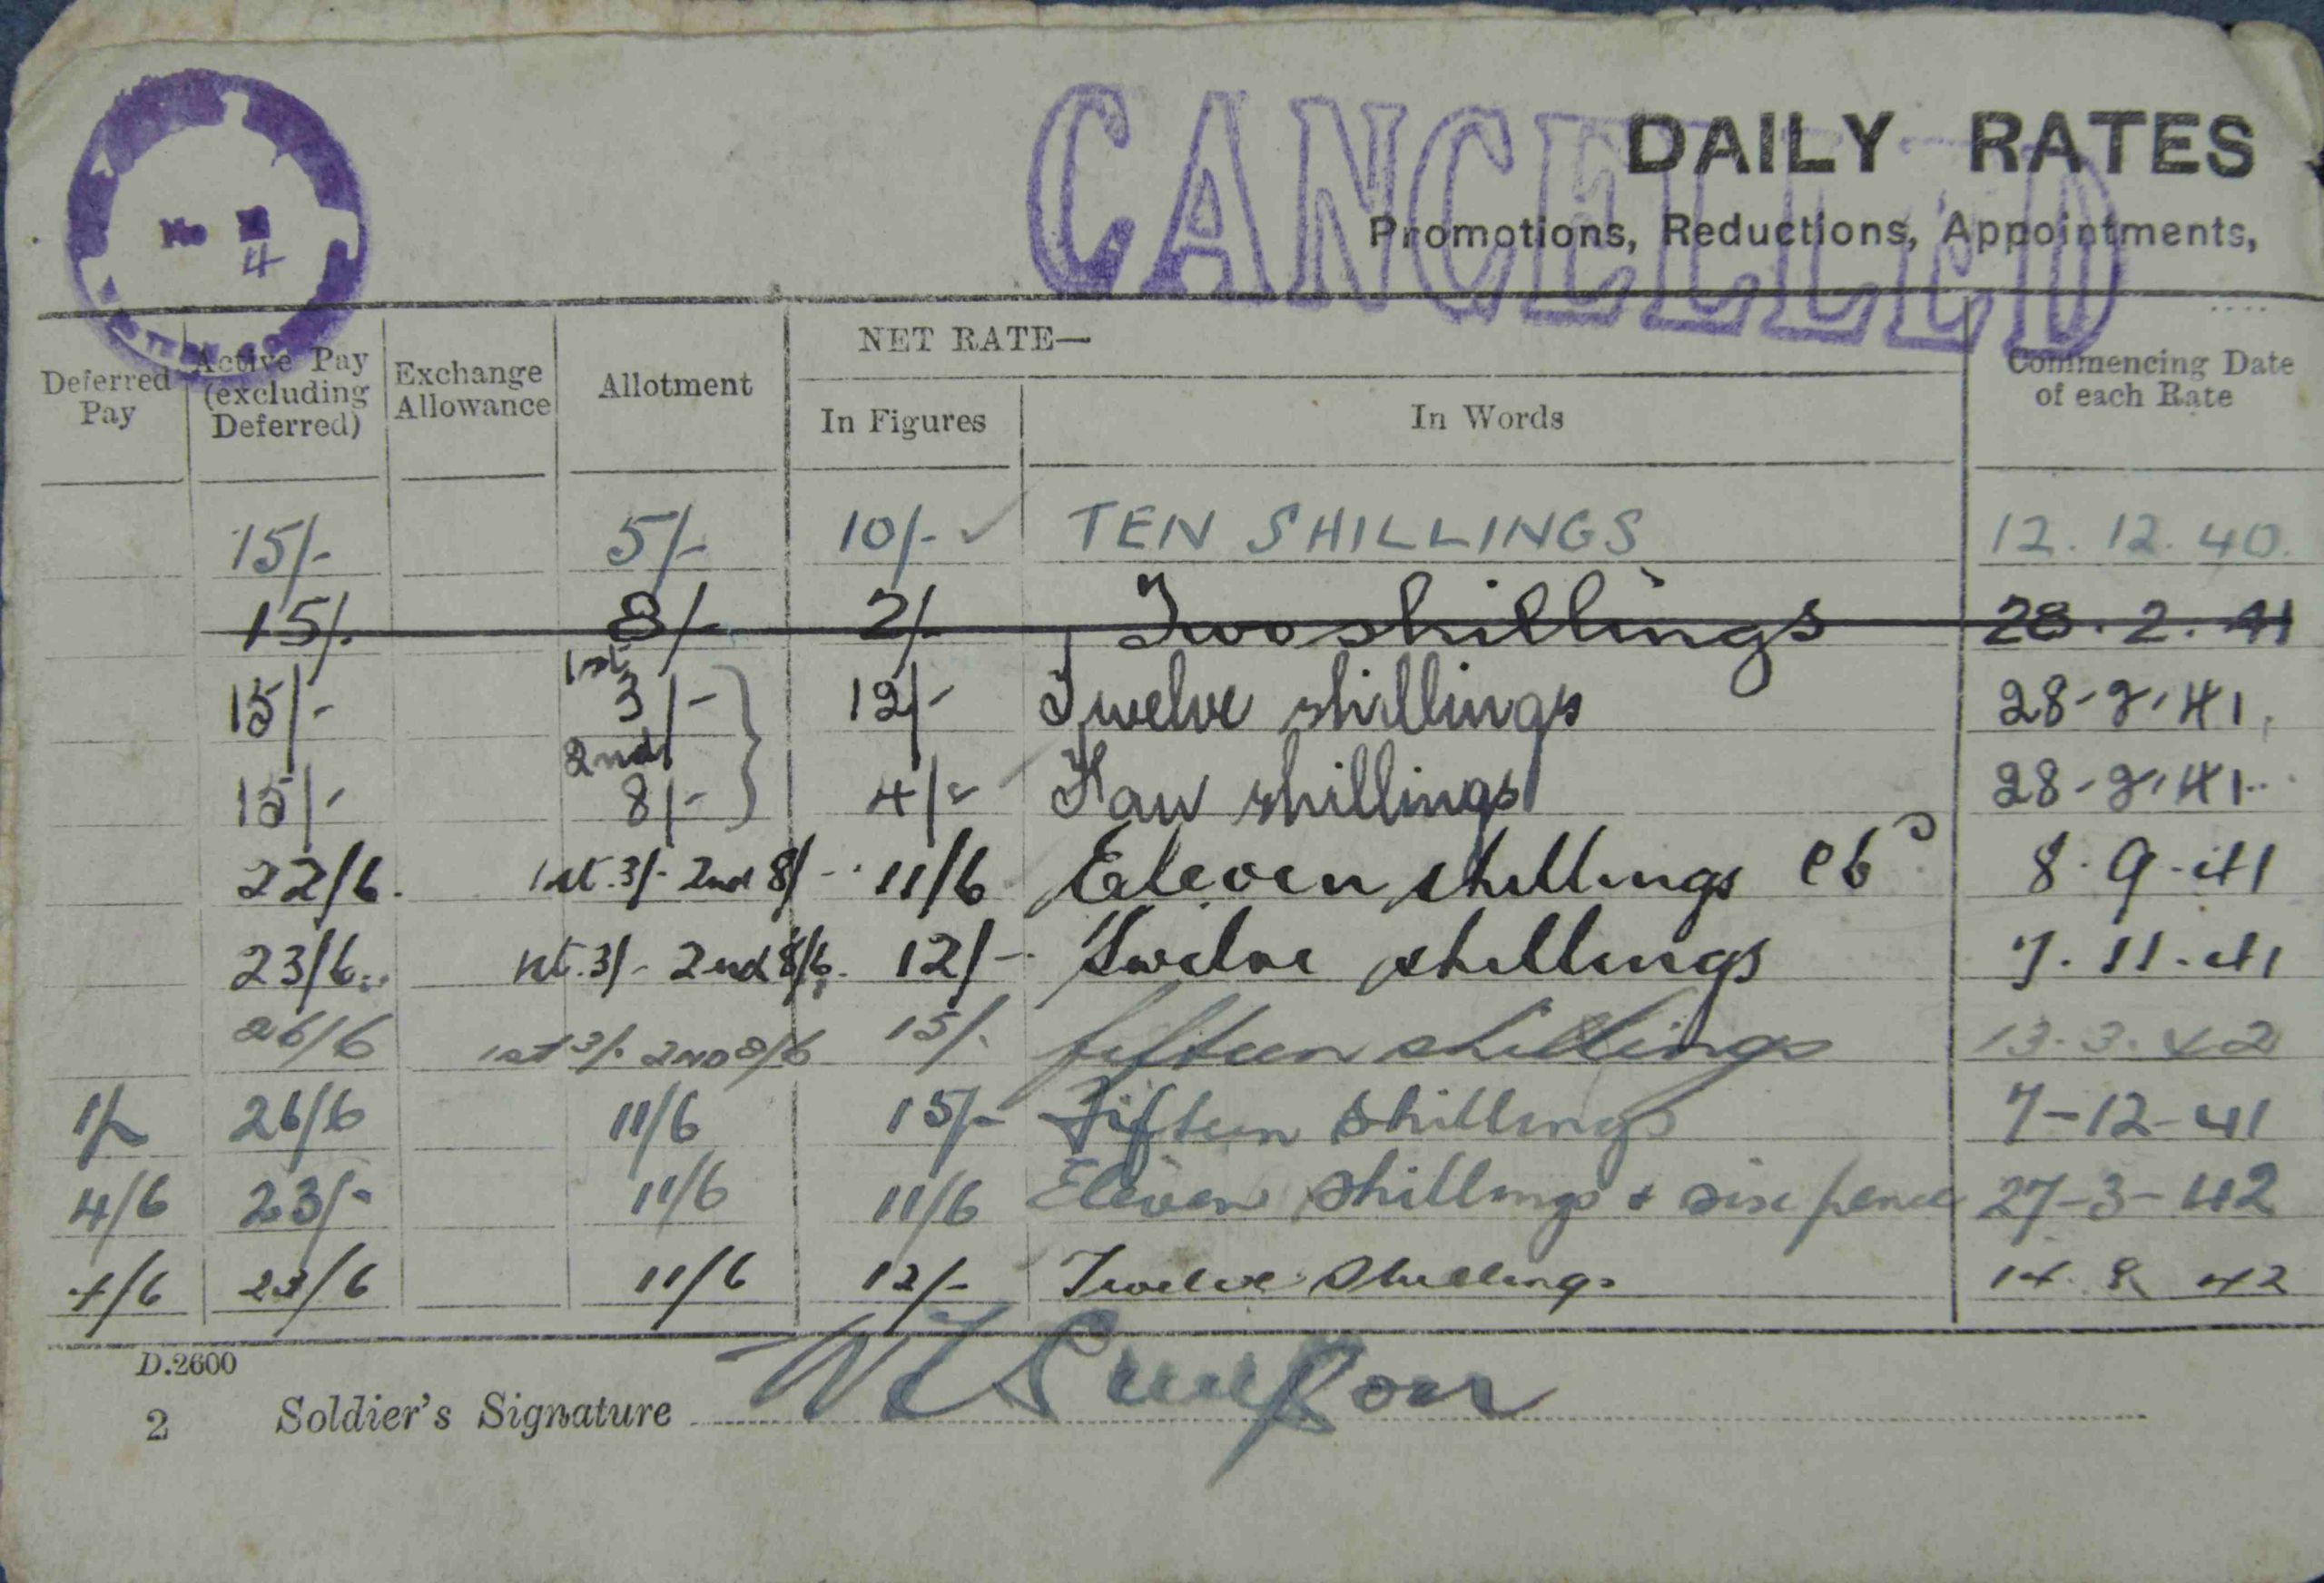 CANCELLED
DAILY RATES
No 4
Promotions, Reductions, Appointments,
Deferred Pay
Active Pay (excluding Deferred)
Exchange Allowance
Allotment
NET RATE—
In Figures
In Words
Commencing Date of each Rate
15/- 5/- 10/- ✓ TEN SHILLINGS 12.12.40.
15/- 8/- 2/- Two shillings 28.2.41
15/- 1st 3/- 12/- Twelve shillings 28-2-41
15/- 2nd 8/- 4/- Four shillings 28-2-41
22/6. 1st.3/- 2nd 8/- 11/6 Eleven shillings 8.9.41
23/6 1st.3/- 2nd 8/6 12/- Twelve shillings 7.11.41
26/6 1st 3/- 2ND 8/6 15/- fifteen shillings 13.3.42
1/- 26/6 11/6 15/- Fifteen Shillings 7-12-41
4/6 23/- 11/6 11/6 Eleven Shillings + six pence 27-3-42
4/6 23/6 11/6 12/- Twelve Shillings 14.8.42
D.2600
2 Soldier's Signature